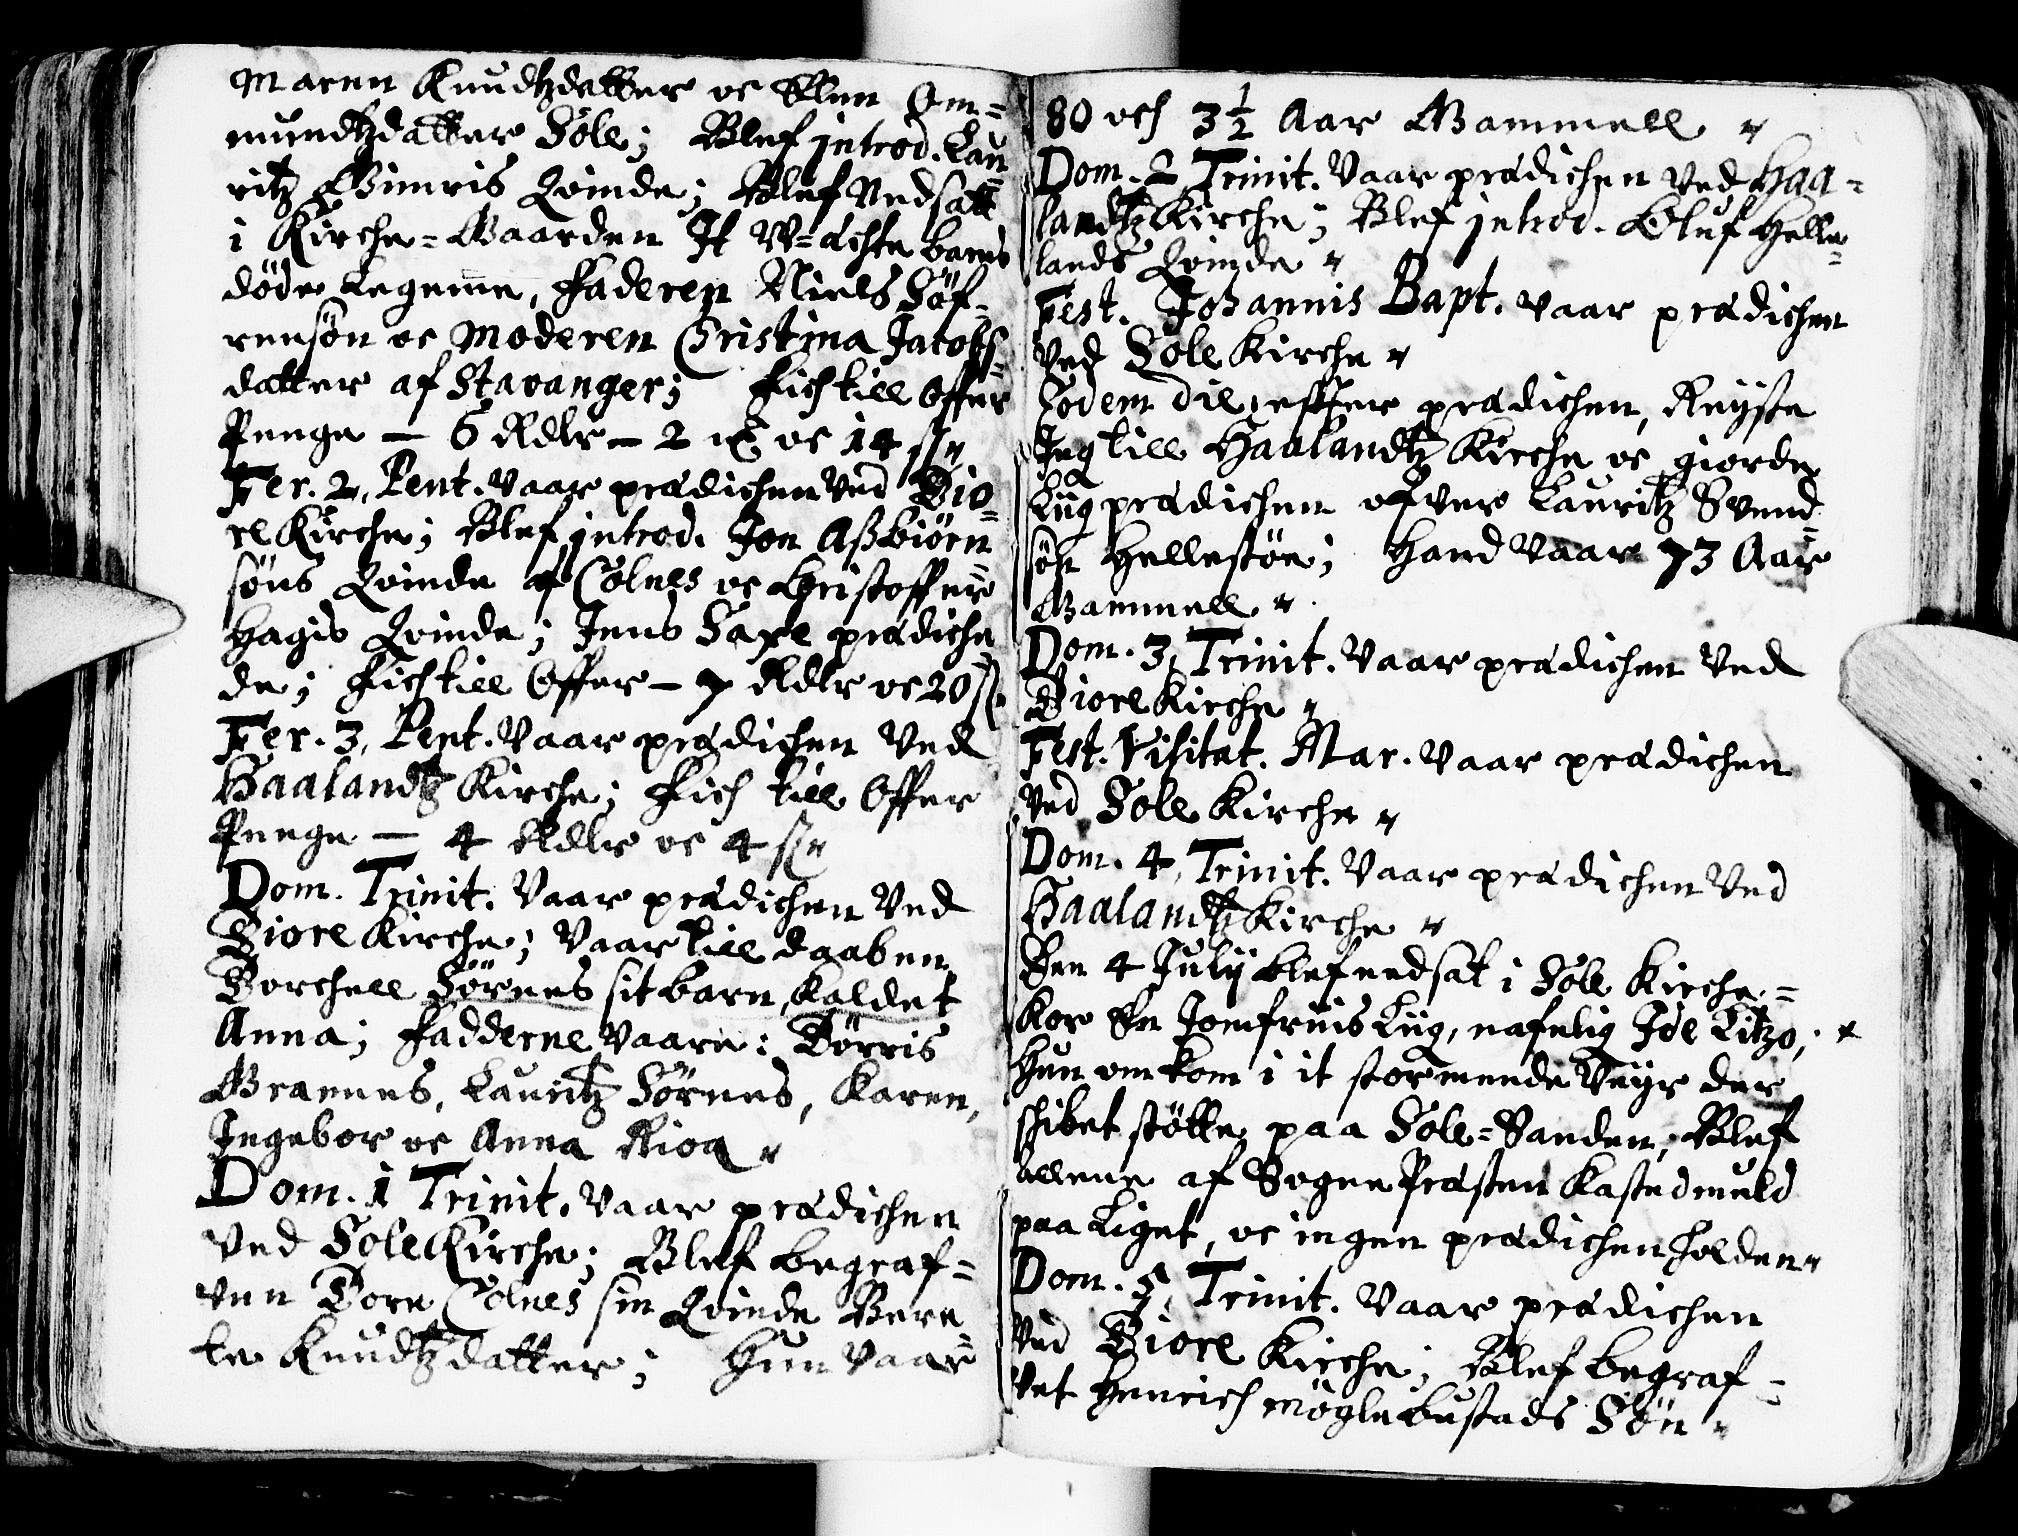 Maren Knudtzdatter oc Elen Om=
mundtzdatter Sole; Blef introd. Lau=
ritz Gimris Qvinde; Blef Nedsatt
i Kirche=Gaarden It W=ächte barns
döde Legeme, Faderen Niels Söf=
rensön oc Moderen Christina Jacobs=
datter af Stavanger; Fich till Offer
Penge — 6 Rdlr — 2 oc 14 ß
Fer. 2, Pent. Vaar prædichen Ved Tio=
re Kirche; Blef introd. Jon Aßbiörn=
söns Qvinde af Colnes oc Christoffer
Hagis Qvinde; Jens Saxe prædiche=
de; Fich till Offer — 7 Rdlr oc 20 ß
Fer. 3, Pent. Vaar prædichen Ved
Haalandtz Kirche; Fich till Offer
Penge — 4 Rdlr oc 4 ß
Dom. Trinit. Vaar prædichen Ved
Tiore Kirche; Vaar till daaben
Torchell Sörnes sit barn, kaldet
Anna; Fadderne Vaare: Börris
Grannes, Lauritz Sörnes, Karen,
Ingebor oc Anna Rioa
Dom. 1 Trinit. Vaar prædichen
Ved Sole Kirche; Blef begraf=
ven Tore Colnes sin Qvinde Bere=
te Knudtzdatter; Hun Vaar
80 och 3 1/2 Aar Gammell
Dom. 2, Trinit. Vaar prædichen Ved Haa=
landtz Kirche; Blef introd. Oluf Helle=
lands Qvinde
Fest. Johannis Bapt. Vaar prædichen
Ved Sole Kirche
Eodem die, effter prædichen, Reyste
Jeg till Haalandtz Kirche oc giorde
Liig prædichen ofver Lauritz Svend=
sön Hellestöe; Hand Vaar 73 Aar
Gammell
Dom. 3, Trinit. Vaar prædichen Ved
Tiore Kirche
Fest. Visitat. Mar. Vaar prædichen
Ved Sole Kirche
Dom. 4, Trinit. Vaar prædichen Ved
Haalandtz Kirche
Den 4 Julij blef nedsat i Sole Kirche=
Kor En Jomfruis Liig, nafnlig Ide Litzo,
Hun omkom i it stormende Veyr der
schibet stötte paa Sole=Sanden; Blef
allene af Sogne Præsten kasted muld
paa Liget, oc ingen prædichen holden
Dom. 5, Trinit. Vaar prædichen
Ved Tiore Kirche; Blef begraf=
vet Henrich Möglebustads Sön